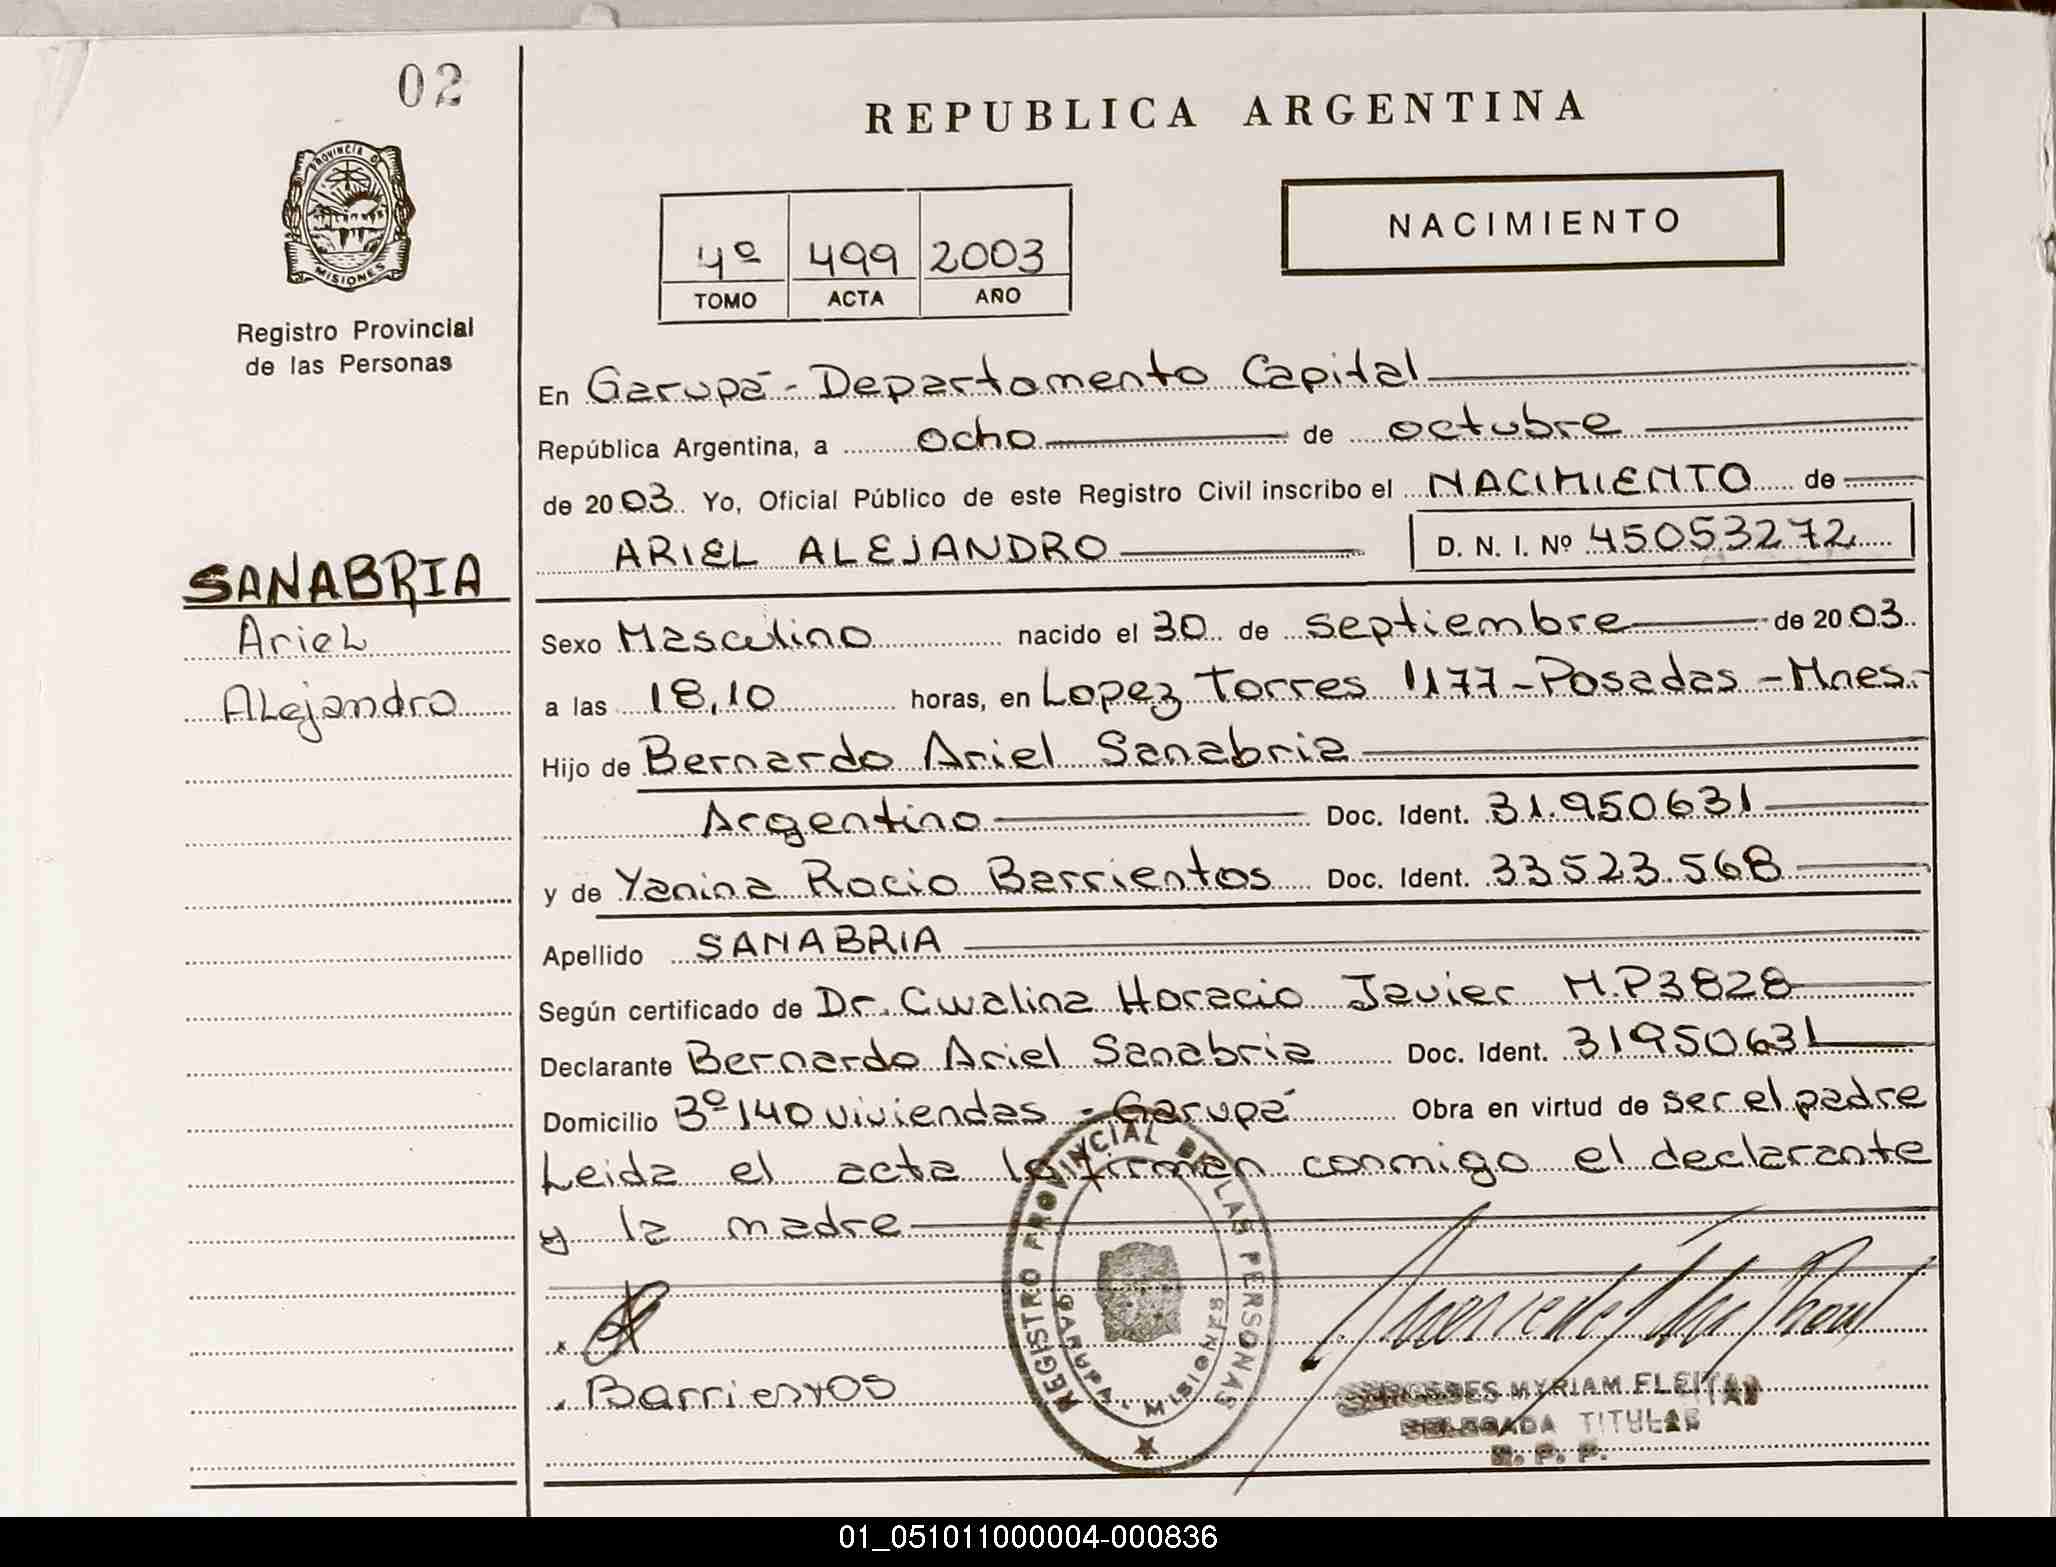 02
REPUBLICA ARGENTINA
PROVINCIA D
MISIONES
Registro Provincial
de las Personas
4º 499 2003
TOMO ACTA AÑO
NACIMIENTO
En Garupá - Departamento Capital
República Argentina, a ocho de octubre
de 2003. Yo, Oficial Público de este Registro Civil inscribo el NACIMIENTO de
ARIEL ALEJANDRO D. N. I. Nº 45053272
SANABRIA
Ariel
Alejandro
Sexo Masculino nacido el 30 de septiembre de 2003.
a las 18,10 horas, en Lopez Torres 1177 - Posadas - Mnes.-
Hijo de Bernardo Ariel Sanabria
Argentino Doc. Ident. 31.950631
y de Yanina Rocio Barrientos Doc. Ident. 33523568
Apellido SANABRIA
Según certificado de Dr. Cwalina Horacio Javier M.P3828
Declarante Bernardo Ariel Sanabria Doc. Ident. 31950631
Domicilio Bº 140 viviendas - Garupá Obra en virtud de ser el padre
Leida el acta la firman conmigo el declarante
y la madre
REGISTRO PROVINCIAL DE LAS PERSONAS
GARUPA - MISIONES
Barrientos
MERCEDES MYRIAM FLEITAS
DELEGADA TITULAR
R. P. P.
01_051011000004-000836